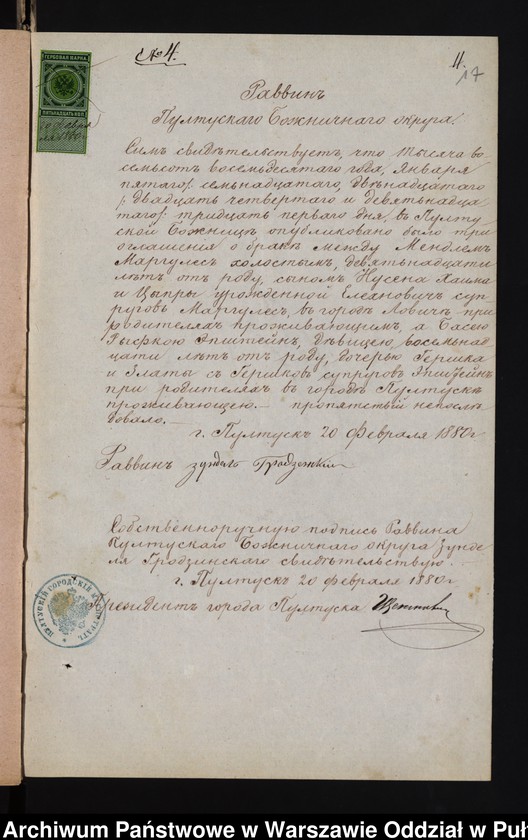 № 4.
4.
17
ГЕРБОВАЯ МАРКА
ПЯТЬНАДЦАТЬ КОП.
Раввинъ
Пултускаго Божничнаго округа.
Симъ свидѣтельствуетъ, что тысяча во
семьсотъ восемьдесятаго года, Января
пятаго/ семьнадцатаго, двѣнадцатаго
/ двадцать четвертаго и девятьнадца
таго/ тридцать перваго дня, въ Пулту
ской Божницѣ опубликовано было три
оглашенія о бракѣ между Мендлемъ
Маргулесъ холостымъ, девятьнадцати
лѣтъ отъ роду, сыномъ Нусена Хаима
и Ципры урожденной Елеховичъ суп
руговъ Маргулесъ, въ городѣ Ловичѣ при
родителяхъ проживающимъ, а Басею
Эпштейнъ, дѣвицею, восемьнад
цати лѣтъ отъ роду, дочерью Гершка
и Златы съ Гершковъ супруговъ Эпштейнъ
при родителяхъ въ городѣ Пултускѣ
проживающею. — препятствій непослѣ
довало. —
г. Пултускъ 20 Февраля 1880 г
Раввинъ
Собственноручную подпись Раввина
Пултускаго Божничнаго округа Зунде
ля Гродзинскаго свидѣтельствую.
г. Пултускъ 20 Февраля 1880 г
Президентъ города Пултуска
ПУЛТУСКІЙ ГОРОДСКІЙ МАГИСТРАТЪ
Archiwum Państwowe w Warszawie Oddział w Puł